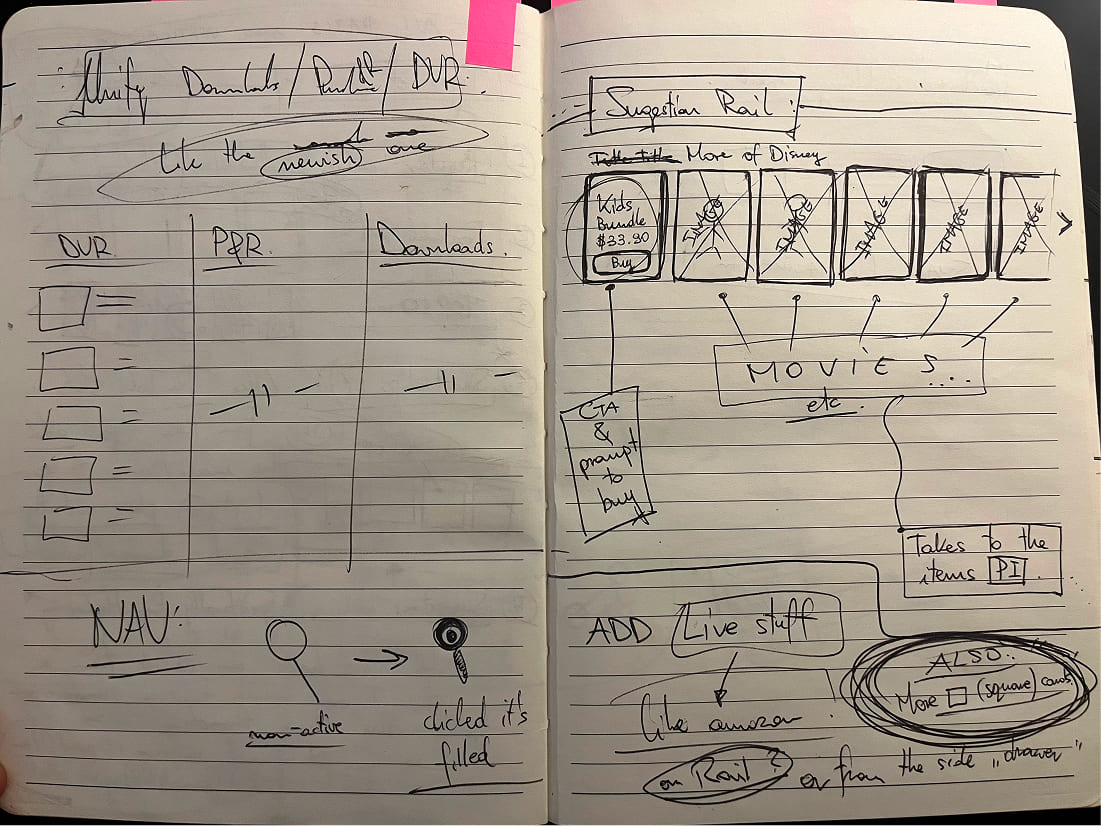 Unify Downloads / / DVR.
Like the newish one
DVR
P&R.
Downloads.
NAV:
non-active
clicked it's
filled
Sugestian Rail:
More of Disney
Kids
Bundle
$33.90
Buy
IMAGE
IMAGE
IMAGE
IMAGE
IMAGE
MOVIES...
etc.
CTA
&
prompt
to
buy
Takes to the
items PI.
ADD Live stuff
Like amazon
on Rail? or from the side „drawer"
ALSO:
More (square) cards.